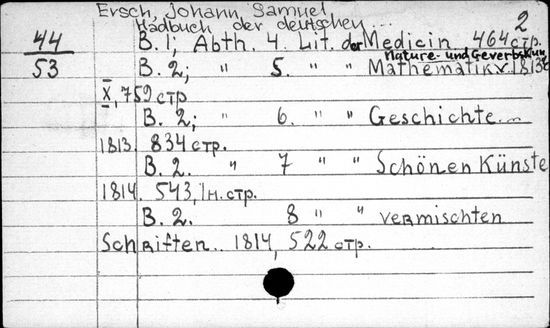 Ersch, Johann Samuel
Hadbuch der deutschen ... 2
44 B. 1; Abth. 4. Lit. der Medicin 464 стр.
Nature- und Geverbskun
53 B. 2; " 5. " " Mathematik 1813
X, 759 стр
B. 2; " 6. " " Geschichte...
1813. 834 стр.
B. 2. " 7 " " Schönen Künste
1814. 543, 1н. стр.
B. 2. 8 " " vermischten
Schriften.. 1814, 522 стр.